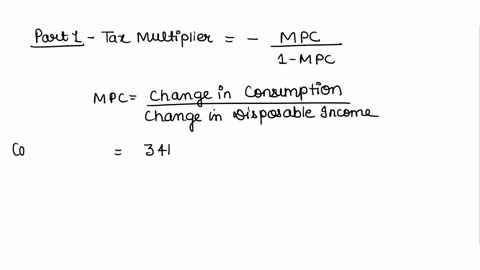 Part 1 - Tax Multiplier = - MPC / 1-MPC
MPC = Change in Consumption / Change in Disposable Income
Co = 341